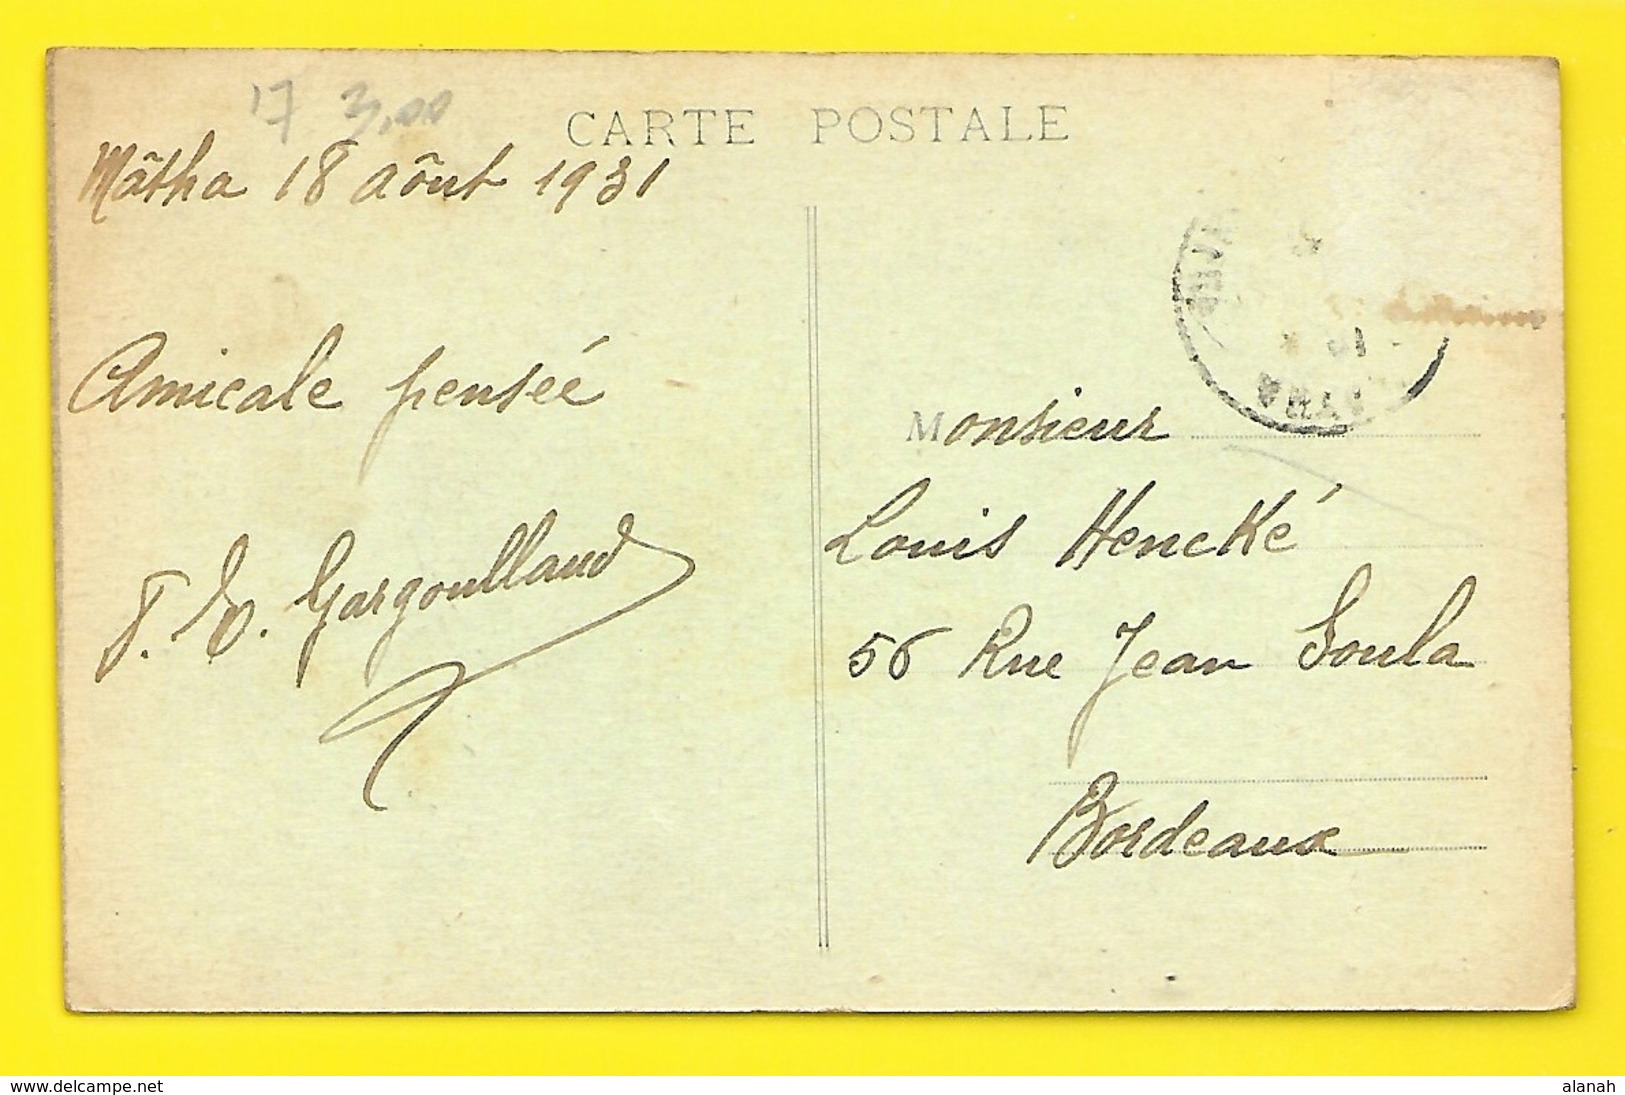 17 3,00
CARTE POSTALE
Mâtha 18 aôut 1931
Amicale pensée
Monsieur
Louis Hencké
56 Rue Jean Soula
Bordeaux
E. Gargoulland
www.delcampe.net
alanah